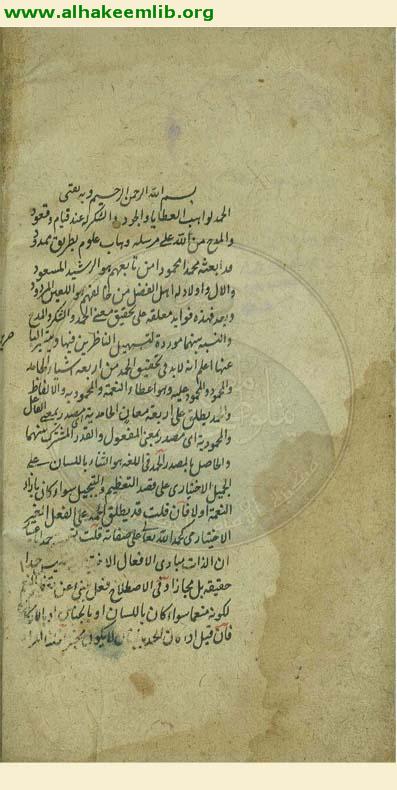 www.alhakeemlib.org
بسم الله الرحمن الرحيم وبه ثقتى
الحمد لواهب العطايا والجود والشكر له عند قيام وقعود
والمدح من الله على مرسله وهاب علوم بطريق ممدود
قد ابعثه محمدا محمودا من تابعهم هو الرشيد المسعود
والال واولاده اهل الفضل من خالفهم هو اللعين المردود
وبعد فهذه فوايد معلقة على تحقيق معنى الحمد والشكر والمدح
والنسبة بينهما موردة لتسهيل الناظرين فيها
عنها اعلم انه لابد فى تحقيق الحمد من اربعة اشياء الحامد
والمحمود والمحمود عليه وهو اعطاء النعمة والمحمود به والالفاظ
والحمد يطلق على اربعة معان الحامدية اى مصدر بمعنى الفاعل
والمحمودية اى مصدر بمعنى المفعول والقدر المشترك بينهما
والحاصل بالمصدر الحمد فى اللغة هو الثناء باللسان على
الجميل الاختيارى على قصد التعظيم والتبجيل سواء كان بازاء
النعمة اولا فان قلت قد يطلق الحمد على الفعل الغير
الاختيارى كحمد الله تعالى على صفاته قلت
ان الذات مبادى الافعال
حقيقة بل مجازا وفى الاصطلاح فعل ينبئ عن تعظيم
لكونه منعما سواء كان باللسان او بالجنان او
فان قيل اذا كان الحمد